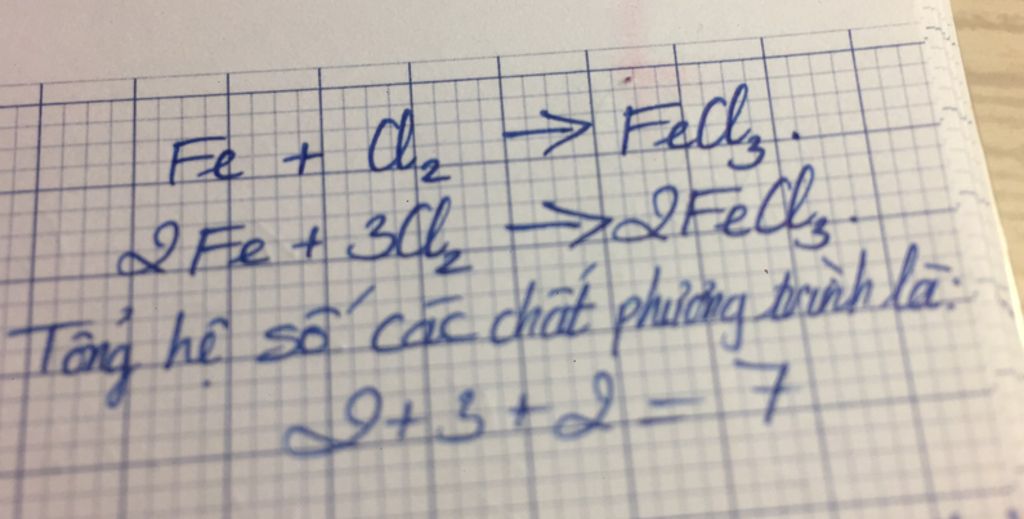 Fe + Cl₂ → FeCl₃.
2Fe + 3Cl₂ → 2FeCl₃.
Tổng hệ số các chất phương trình là:
2 + 3 + 2 = 7